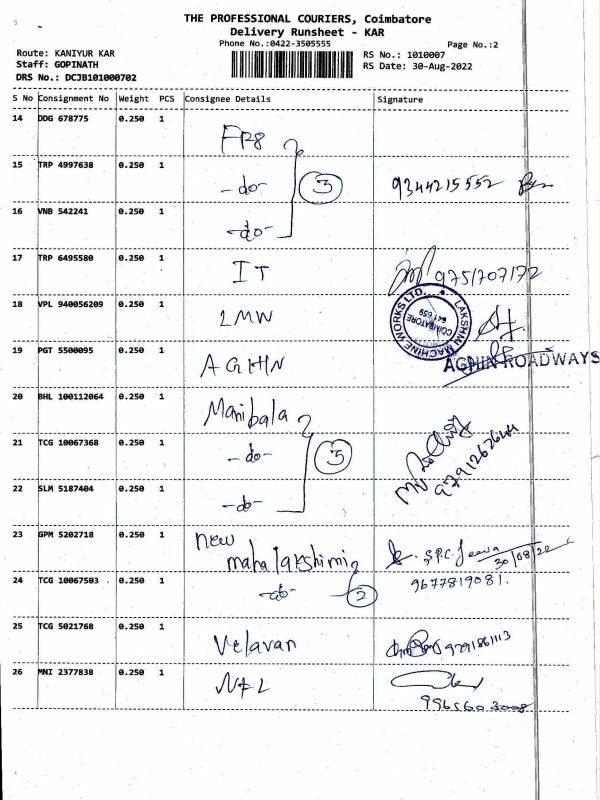 THE PROFESSIONAL COURIERS, Coimbatore
Delivery Runsheet - KAR
Phone No.:0422-3505555
Page No.:2
Route: KANIYUR KAR
Staff: GOPINATH
DRS No.: DCJB101000702
RS No.: 1010007
RS Date: 30-Aug-2022
S No Consignment No Weight PCS Consignee Details Signature
14 DDG 678775 0.250 1
15 TRP 4997638 0.250 1 -do- 3 9344215552
16 VNB 542241 0.250 1 -do-
17 TRP 6495580 0.250 1 IT 9751707172
18 VPL 940056209 0.250 1 LMW
LAKSHMI MACHINE WORKS LTD. COIMBATORE 641 659
19 PGT 5500095 0.250 1 AGHN
AGHIN ROADWAYS
20 BHL 100112064 0.250 1 Manibala
21 TCG 10067368 0.250 1 -do- 3
22 SLM 5187404 0.250 1 -do-
23 GPM 5202718 0.250 1 new
mahalakshimi 30/08/22
24 TCG 10067503 0.250 1 -do- 2 9677819081.
25 TCG 5021768 0.250 1 Velavan
26 MNI 2377838 0.250 1 NFL
9965603008